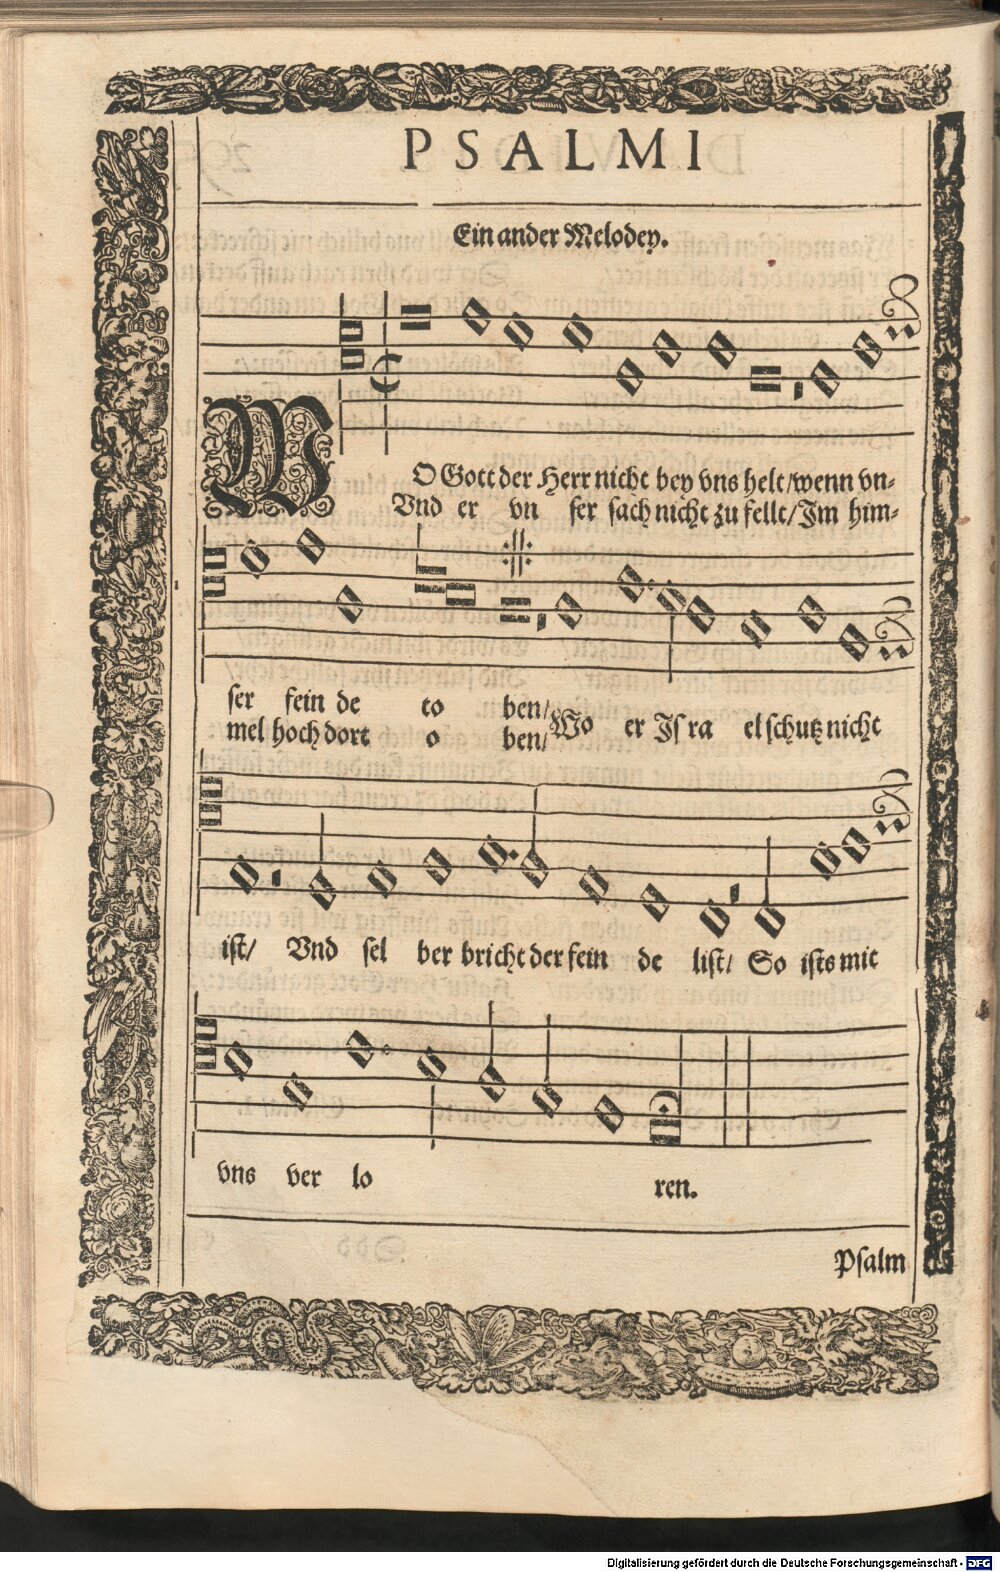 PSALMI
Ein ander Melodey.
WO Gott der Herr nicht bey vns helt/wenn vn-
Vnd er vn ser sach nicht zu fellt/Im him-
ser fein de to ben/
mel hoch dort o ben/
Wo er Jsra el schutz nicht
ist/ Vnd sel ber bricht der fein de list/ So ists mit
vns ver lo ren.
Psalm
Digitalisierung gefördert durch die Deutsche Forschungsgemeinschaft - DFG